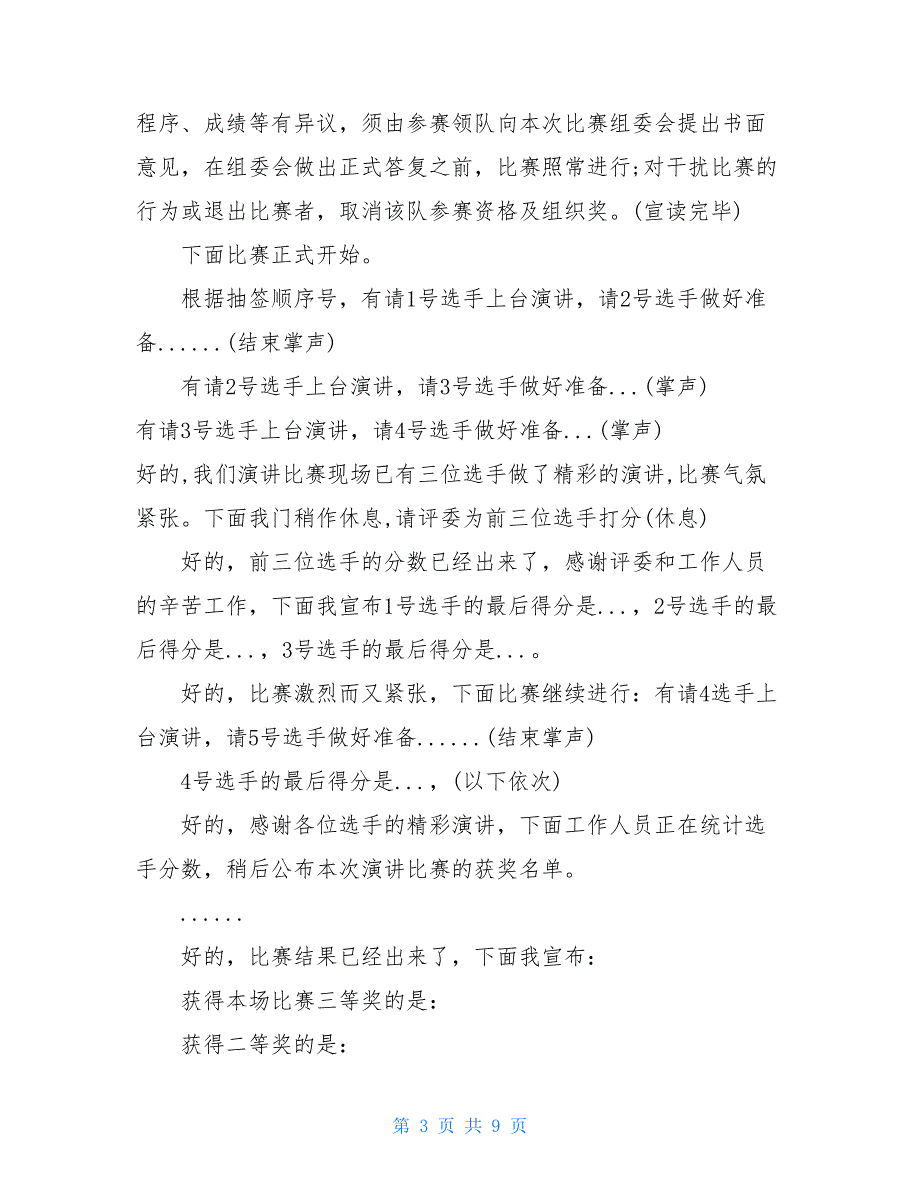 程序、成绩等有异议，须由参赛领队向本次比赛组委会提出书面
意见，在组委会做出正式答复之前，比赛照常进行;对干扰比赛的
行为或退出比赛者，取消该队参赛资格及组织奖。(宣读完毕)
下面比赛正式开始。
根据抽签顺序号，有请1号选手上台演讲，请2号选手做好准
备......(结束掌声)
有请2号选手上台演讲，请3号选手做好准备...(掌声)
有请3号选手上台演讲，请4号选手做好准备...(掌声)
好的,我们演讲比赛现场已有三位选手做了精彩的演讲,比赛气氛
紧张。下面我门稍作休息,请评委为前三位选手打分(休息)
好的，前三位选手的分数已经出来了，感谢评委和工作人员
的辛苦工作，下面我宣布1号选手的最后得分是...，2号选手的最
后得分是...，3号选手的最后得分是...。
好的，比赛激烈而又紧张，下面比赛继续进行：有请4选手上
台演讲，请5号选手做好准备......(结束掌声)
4号选手的最后得分是...，(以下依次)
好的，感谢各位选手的精彩演讲，下面工作人员正在统计选
手分数，稍后公布本次演讲比赛的获奖名单。
......
好的，比赛结果已经出来了，下面我宣布：
获得本场比赛三等奖的是：
获得二等奖的是：
第 3 页 共 9 页